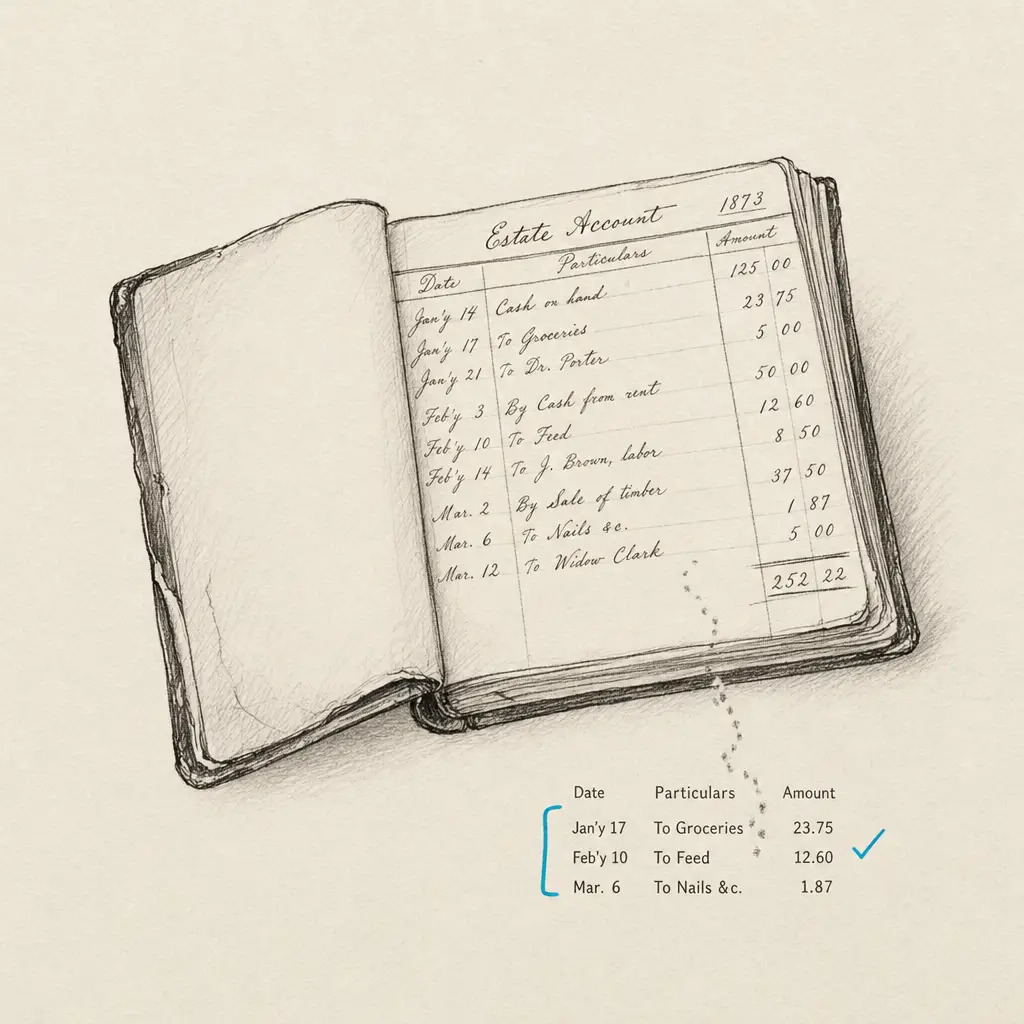 Estate Account 1873
Date Particulars Amount
Jan'y 14 Cash on hand 125 00
Jan'y 17 To Groceries 23 75
Jan'y 21 To Dr. Porter 5 00
Feb'y 3 By Cash from rent 50 00
Feb'y 10 To Feed 12 60
Feb'y 14 To J. Brown, labor 8 50
Mar. 2 By Sale of timber 37 50
Mar. 6 To Nails &c. 1 87
Mar. 12 To Widow Clark 5 00
252 22
Date Particulars Amount
Jan'y 17 To Groceries 23.75
Feb'y 10 To Feed 12.60
Mar. 6 To Nails &c. 1.87